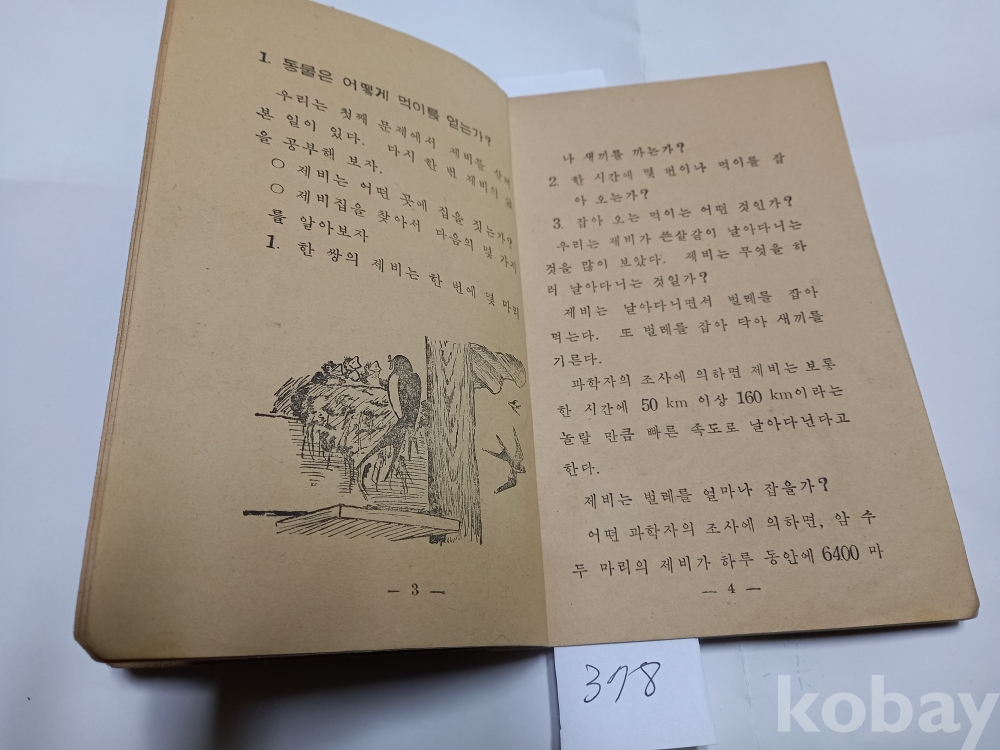 1. 동물은 어떻게 먹이를 얻는가?
우리는 첫째 문제에서 제비를 살펴
본 일이 있다. 다시 한 번 제비의 삶
을 공부해 보자.
○ 제비는 어떤 곳에 집을 짓는가?
○ 제비집을 찾아서 다음의 몇 가지
를 알아보자
1. 한 쌍의 제비는 한 번에 몇 마리
— 3 —
나 새끼를 까는가?
2. 한 시간에 몇 번이나 먹이를 잡
아 오는가?
3. 잡아 오는 먹이는 어떤 것인가?
우리는 제비가 쏜살같이 날아다니는
것을 많이 보았다. 제비는 무엇을 하
러 날아다니는 것일가?
제비는 날아다니면서 벌레를 잡아
먹는다. 또 벌레를 잡아 닥아 새끼를
기른다.
과학자의 조사에 의하면 제비는 보통
한 시간에 50 km 이상 160 km이라는
놀랄 만큼 빠른 속도로 날아다닌다고
한다.
제비는 벌레를 얼마나 잡을가?
어떤 과학자의 조사에 의하면, 암 수
두 마리의 제비가 하루 동안에 6400 마
— 4 —
378
kobay